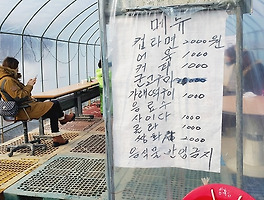 메뉴
컵라면 2000원
어묵 1000
커피 1000
군고구마
가래떡구이 1000
음료수
사이다 1000
콜라 1000
쌍화차
음식물 반입금지